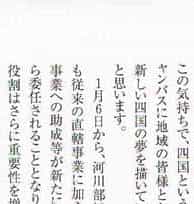 この気持ちで、四国とい
ャンバスに地域の皆様と
新しい四国の夢を描いて
と思います。
1月6日から、河川部
も従来の直轄事業に加え
事業への助成等が新たに
ら委任されることとなり
役割はさらに重要性を増